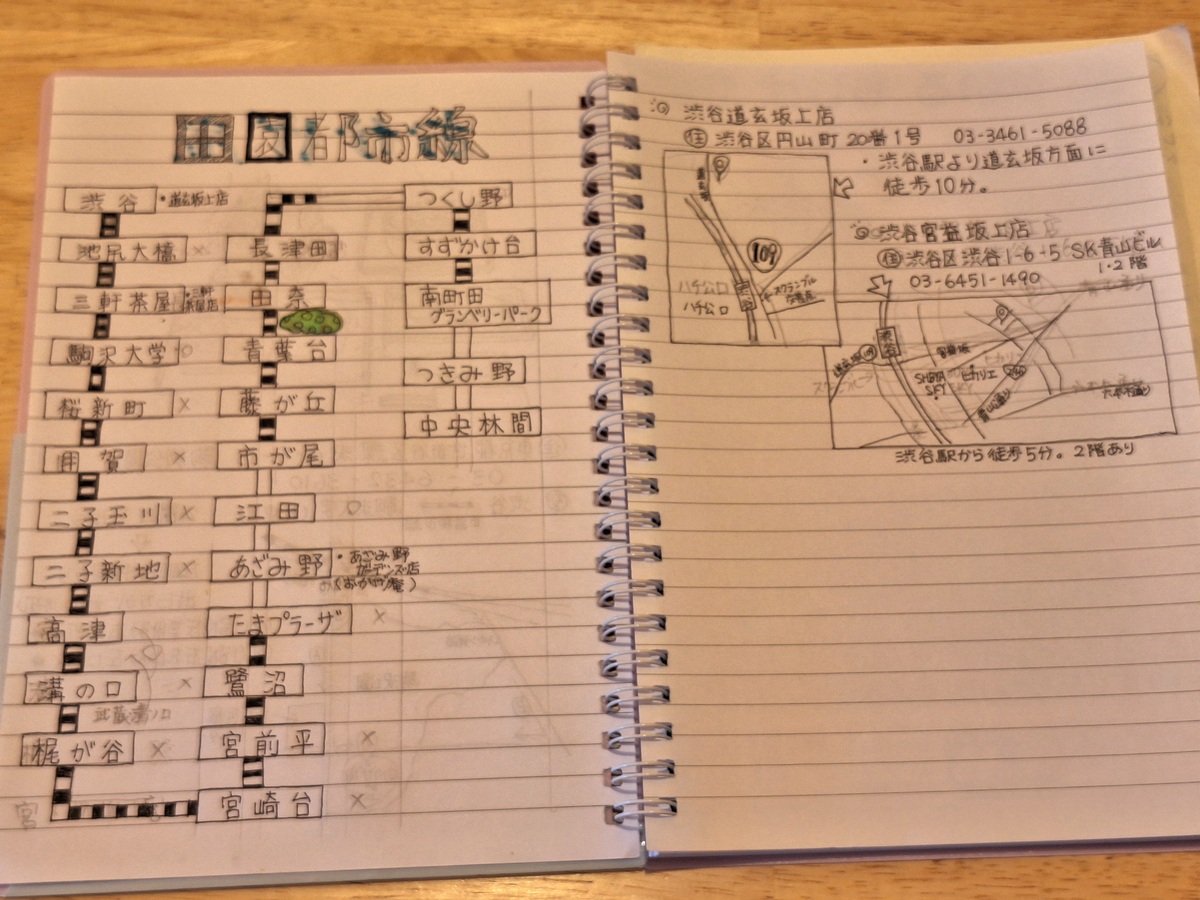 田園都市線
渋谷 ・道玄坂上店
池尻大橋 ×
三軒茶屋 三軒茶屋店
駒沢大学 ○
桜新町 ×
用賀 ×
二子玉川 ×
二子新地 ×
高津
溝の口 ×
武蔵溝ノ口
梶が谷 ×
宮
長津田
田奈
青葉台
藤が丘
市が尾
江田 ○
あざみ野 ・あざみ野
ガーデンズ店
(おかげ庵)
たまプラーザ ×
鷺沼
宮前平 ×
宮崎台 ×
つくし野
すずかけ台
南町田
グランベリーパーク
つきみ野
中央林間
渋谷道玄坂上店
住 渋谷区円山町20番1号 03-3461-5088
・渋谷駅より道玄坂方面に
徒歩10分。
道玄坂
109
ハチ公口
ハチ公
スクランブル
交差点
渋谷宮益坂上店
住 渋谷区渋谷1-6-5 SK青山ビル
1・2階
03-6451-1490
渋谷
宮益坂
SHIBUYA
SKY
ヒカリエ
246
青山通り
六本木通り
渋谷駅から徒歩5分。2階あり